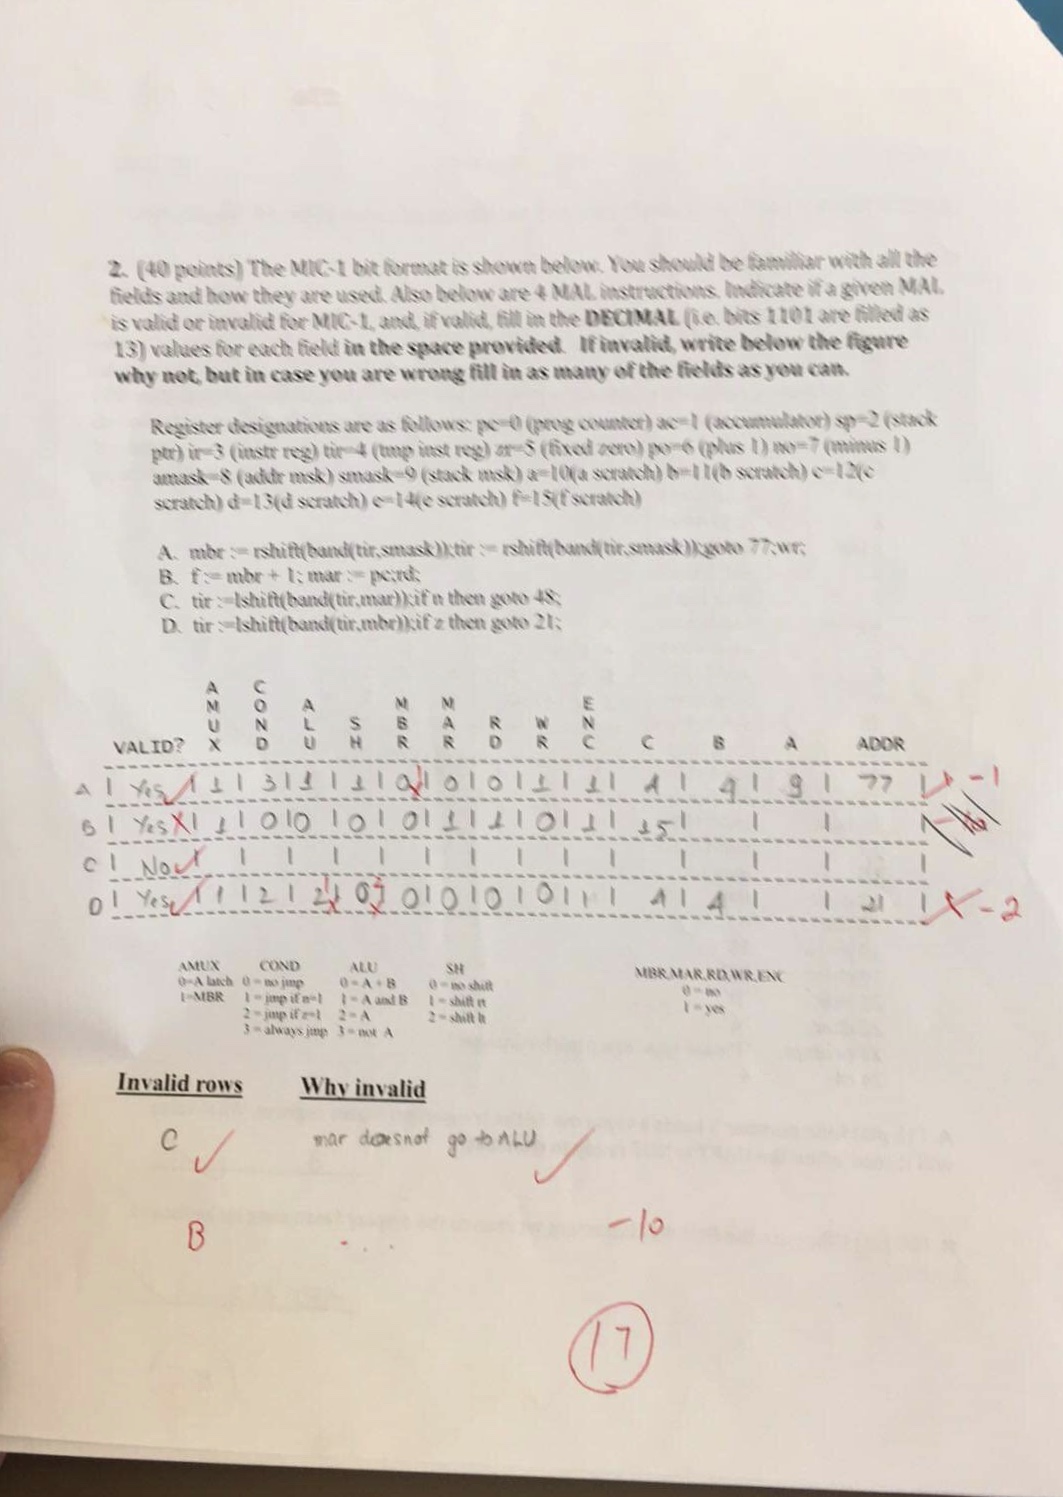 2. (40 points) The MIC-1 bit format is shown below. You should be familiar with all the
fields and how they are used. Also below are 4 MAL instructions. Indicate if a given MAL
is valid or invalid for MIC-1, and, if valid, fill in the DECIMAL (i.e. bits 1101 are filled as
13) values for each field in the space provided. If invalid, write below the figure
why not, but in case you are wrong fill in as many of the fields as you can.
Register designations are as follows: pc=0 (prog counter) ac=1 (accumulator) sp=2 (stack
ptr) ir=3 (instr reg) tir=4 (tmp inst reg) zr=5 (fixed zero) po=6 (plus 1) no=7 (minus 1)
amask=8 (addr msk) smask=9 (stack msk) a=10(a scratch) b=11(b scratch) c=12(c
scratch) d=13(d scratch) e=14(e scratch) f=15(f scratch)
A. mbr := rshift(band(tir,smask));tir := rshift(band(tir,smask));goto 77;wr;
B. f := mbr + 1; mar := pc;rd;
C. tir :=lshift(band(tir,mar));if n then goto 48;
D. tir :=lshift(band(tir,mbr));if z then goto 21;
VALID? AMUX COND ALU SH MBR MAR RD WR ENC C B A ADDR
A | Yes | 1 | 3 | 1 | 1 | 0 | 0 | 0 | 1 | 1 | 4 | 9 | 9 | 77 | -1
B | Yes | 1 | 0 | 0 | 0 | 0 | 1 | 1 | 0 | 1 | 15 | | | |
C | No | | | | | | | | | | | | |
D | Yes | 1 | 2 | 2 | 0 | 0 | 0 | 0 | 0 | 1 | 4 | 4 | | 21 | -2
AMUX COND ALU SH MBR,MAR,RD,WR,ENC
0=A latch 0 = no jmp 0 = A + B 0 = no shift 0 = no
1=MBR 1 = jmp if n=1 1 = A and B 1 = shift rt 1 = yes
2 = jmp if z=1 2 = A 2 = shift lt
3 = always jmp 3 = not A
Invalid rows Why invalid
C mar does not go to ALU
B ... -10
17